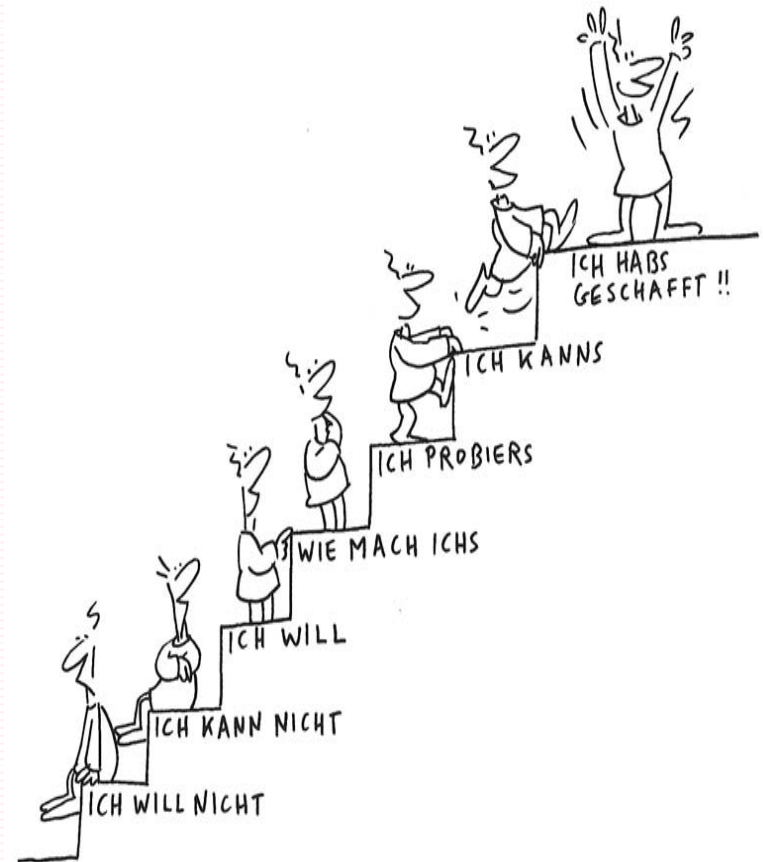 ICH HABS
GESCHAFFT!!
ICH KANNS
ICH PROBIERS
WIE MACH ICHS
ICH WILL
ICH KANN NICHT
ICH WILL NICHT